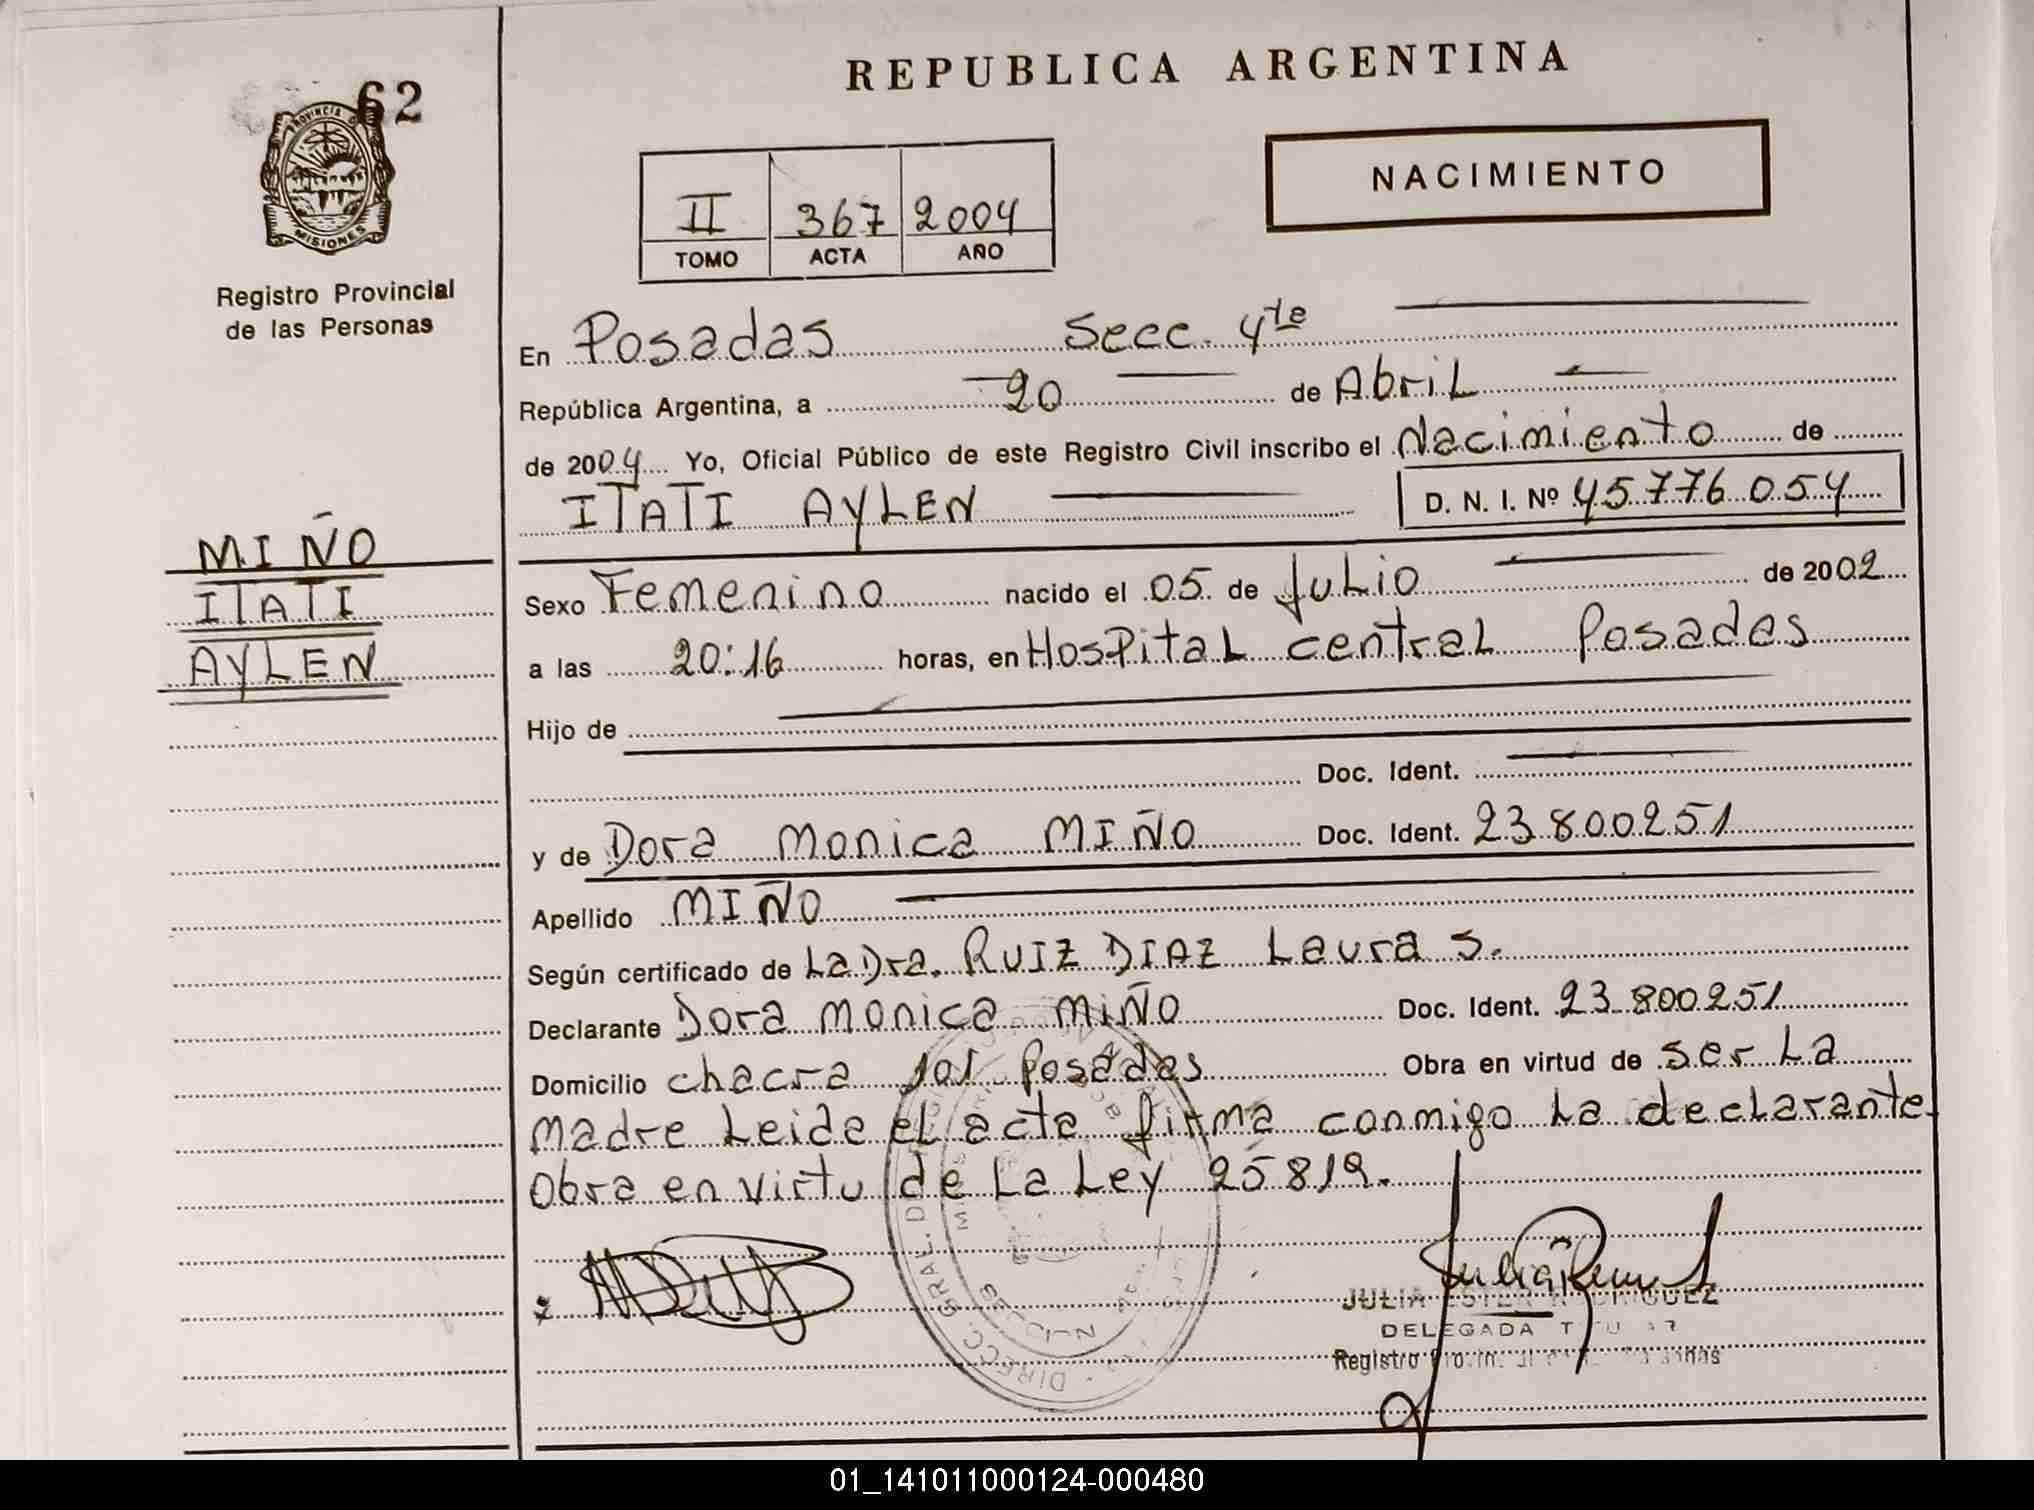 REPUBLICA ARGENTINA
62
PROVINCIA DE
MISIONES
Registro Provincial
de las Personas
NACIMIENTO
II 367 2004
TOMO ACTA AÑO
En Posadas Secc. 4te
República Argentina, a 20 de Abril
de 2004 Yo, Oficial Público de este Registro Civil inscribo el Nacimiento de
ITATI AYLEN D. N. I. Nº 45776054
MIÑO
ITATI
AYLEN
Sexo Femenino nacido el 05 de Julio de 2002
a las 20:16 horas, en Hospital central Posadas
Hijo de
Doc. Ident.
y de Dora Monica MIÑO Doc. Ident. 23800251
Apellido MIÑO
Según certificado de La Dra. RUIZ DIAZ Laura S.
Declarante Dora Monica Miño Doc. Ident. 23.800251
Domicilio chacra 101 Posadas Obra en virtud de ser La
madre Leida el acta firma conmigo La declarante
Obra en virtu de La Ley 25819.
JULIA ESTER RODRIGUEZ
DELEGADA TITULAR
Registro Provincial de las Personas
DIRECC. GRAL. DE
01_141011000124-000480